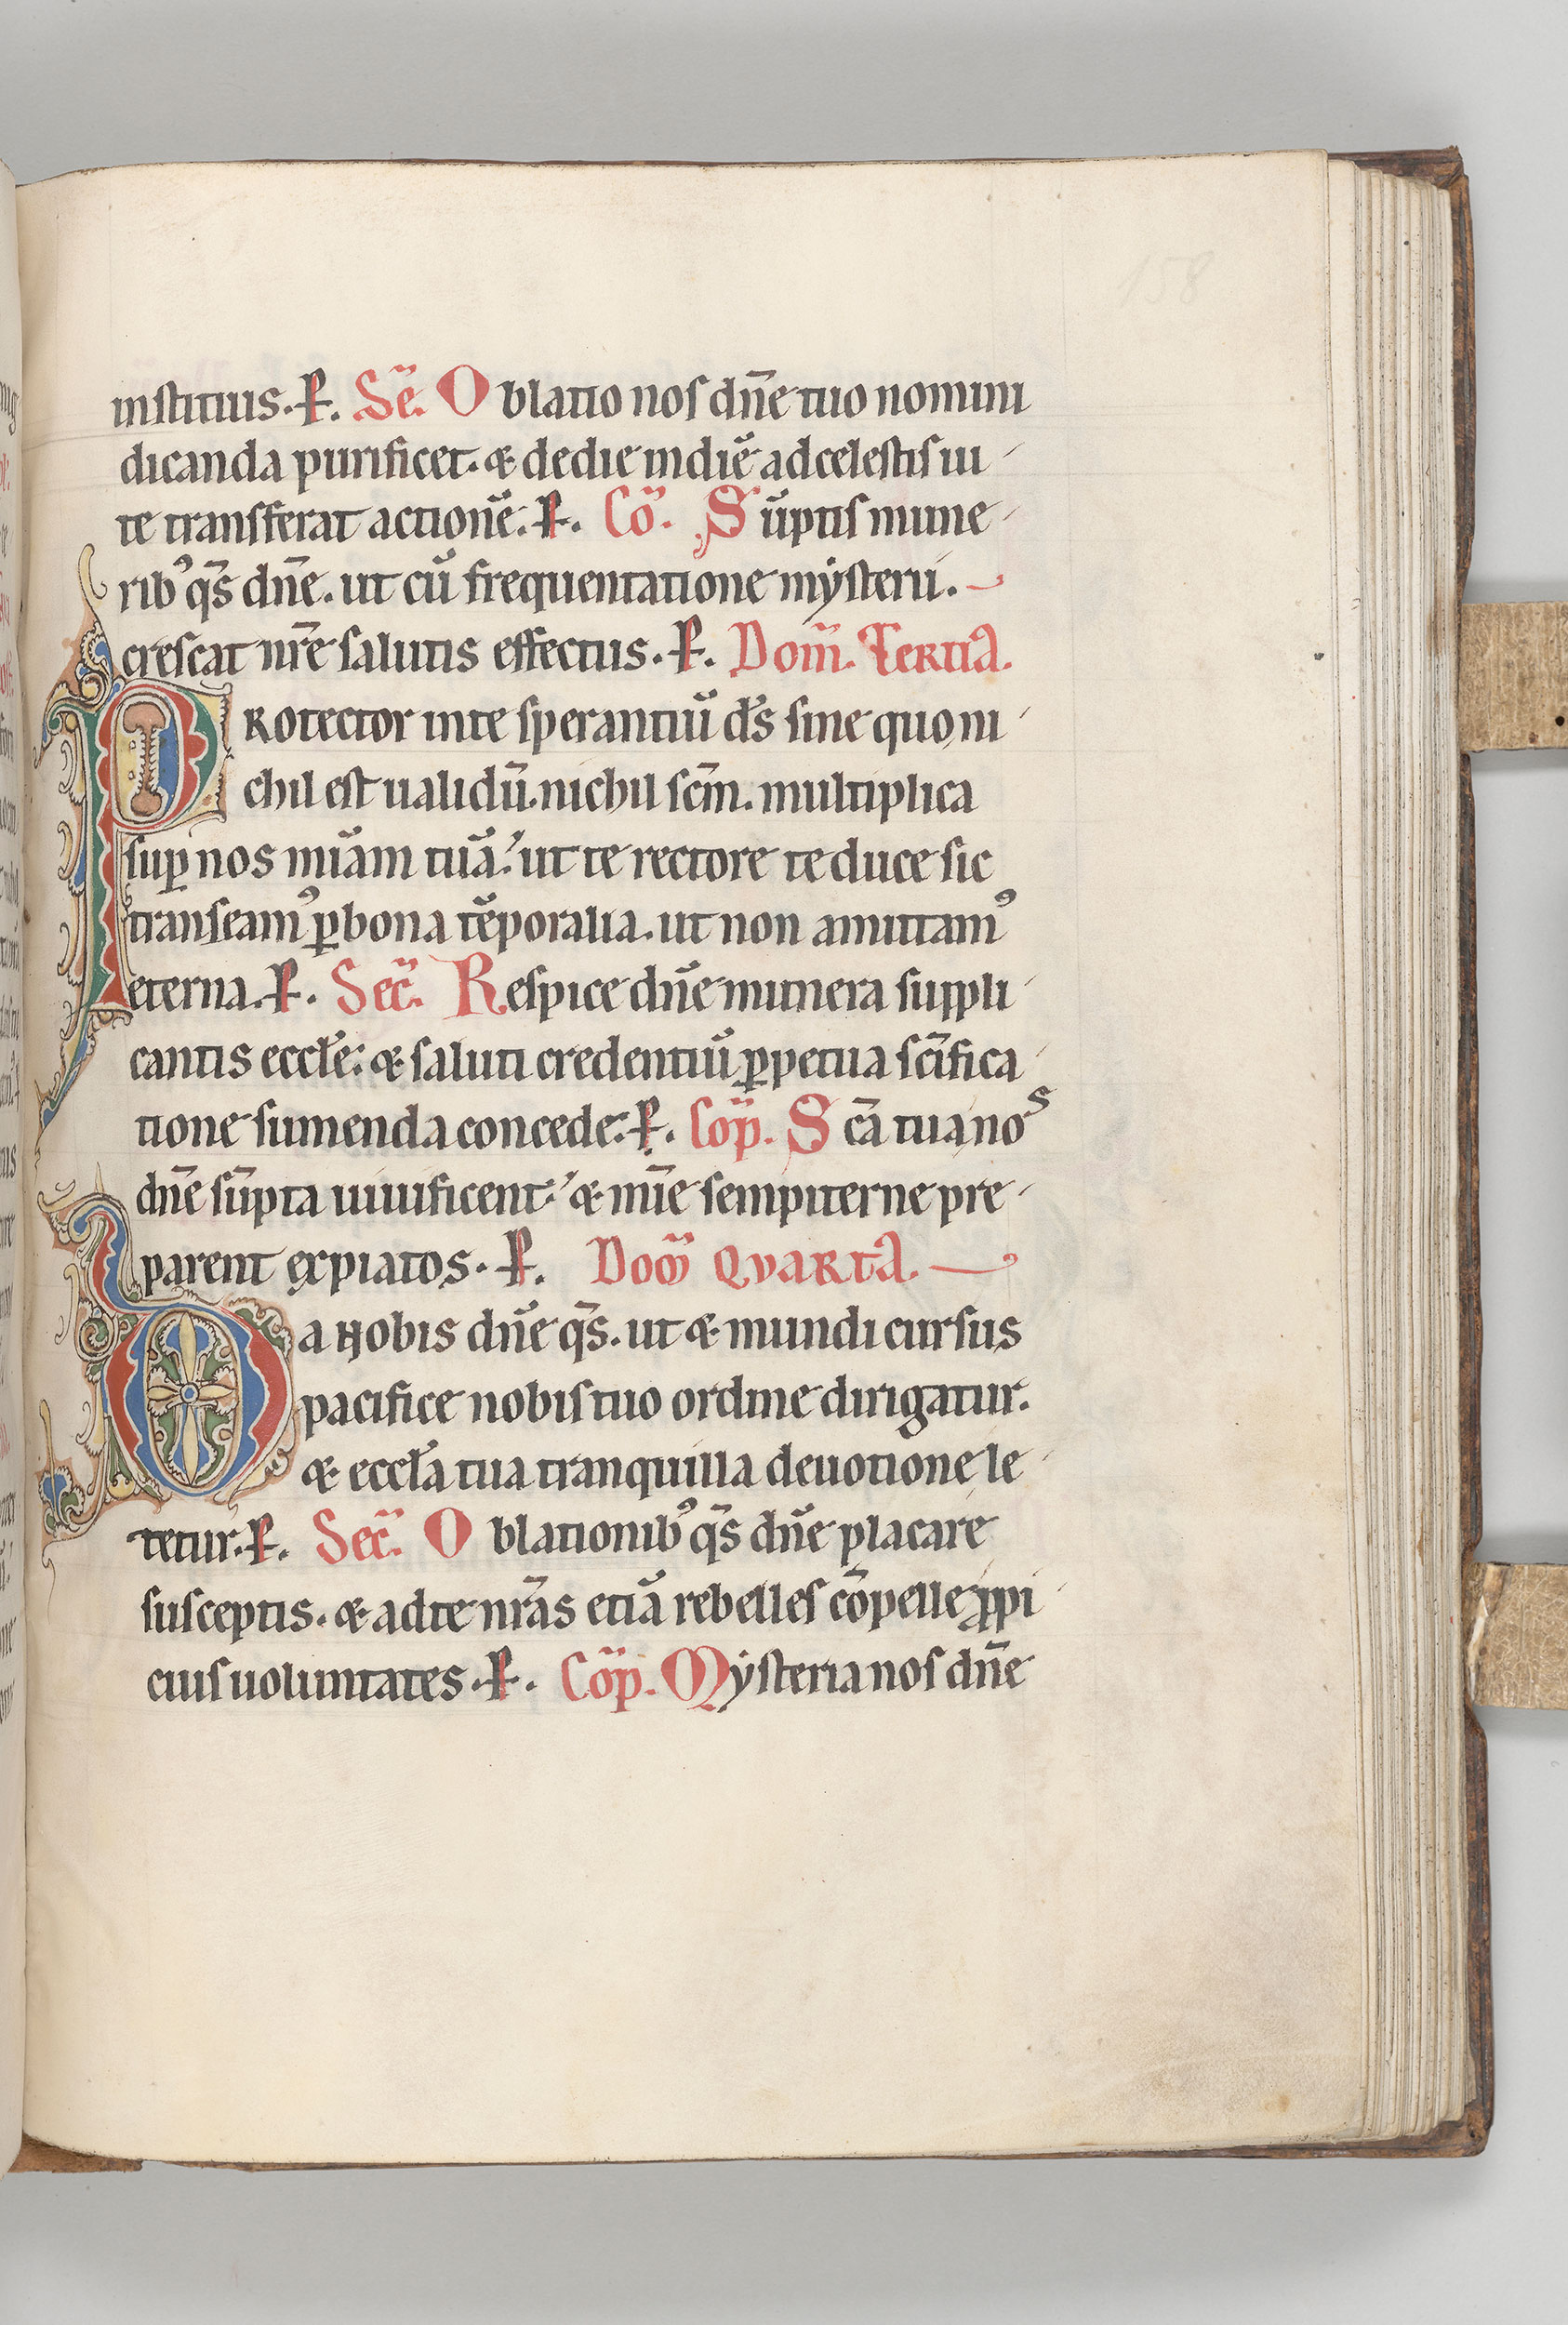 158
instituis. P. Sec̄. Oblatio nos dn̄e tuo nomini
dicanda purificet. & de die in diē ad celestis ui
te transferat actionē. P. Cō. Sūptis mune
rib᾽ qs̄ dn̄e. ut cū frequentatione mẏsterii.
crescat nr̄e salutis effectus. P. Dom̄. Tertia.
Protector in te sperantiū ds̄ sine quo ni
chil est ualidū. nichil sc̄m. multiplica
suꝑ nos mīam tuā. ut te rectore te duce sic
transeam᾽ ꝑ bona tēporalia. ut non amittam᾽
eterna. P. Sec̄. Respice dn̄e munera suppli
cantis eccłe. & saluti credentiū ꝑpetua sc̄ifica
tione sumenda concede. P. Cop̄. Sc̄a tua nos
dn̄e sūpta uiuificent. & mīe sempiterne pre
parent expiatos. P. Dom̄ Qvarta.
Da nobis dn̄e qs̄. ut & mundi cursus
pacifice nobis tuo ordine dirigatur.
& eccła tua tranquilla deuotione le
tetur. P. Sec̄. Oblationib᾽ qs̄ dn̄e placare
susceptis. & ad te nr̄as etiā rebelles cōpelle ꝓpi
cius uoluntates. P. Cop̄. Mẏsteria nos dn̄e